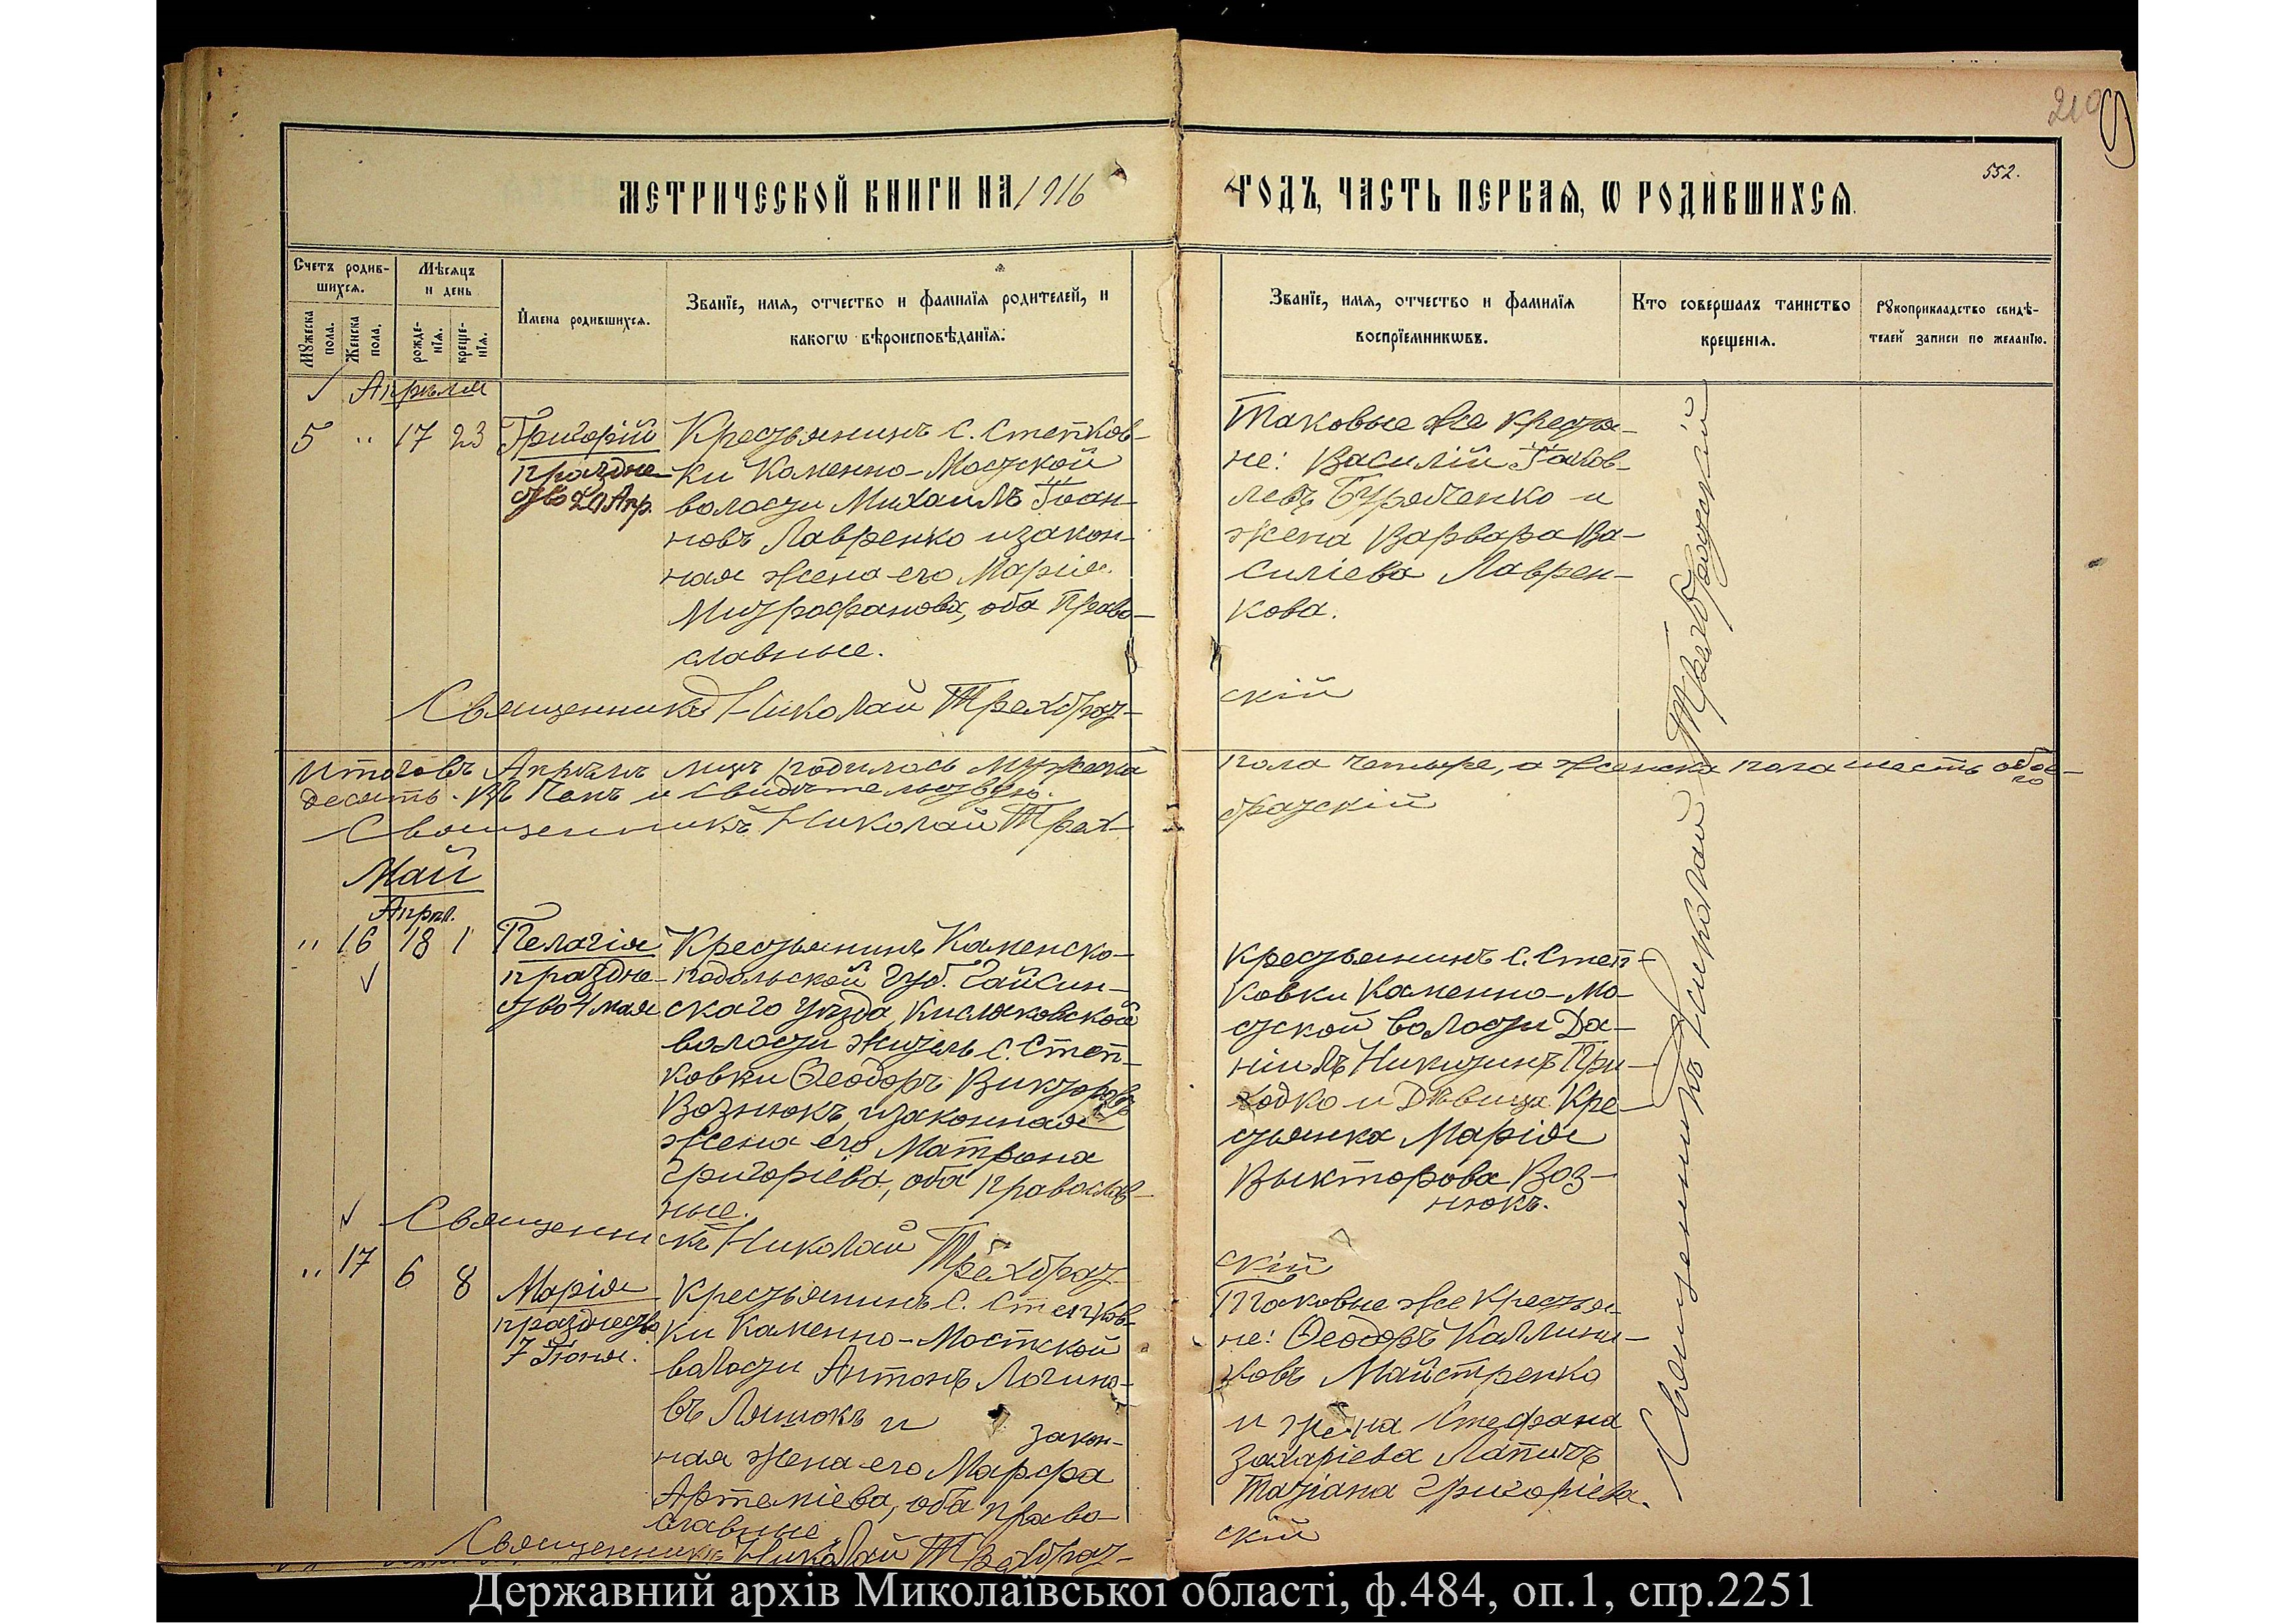 210
552.
МЕТРИЧЕСКОЙ КНИГИ НА 1916
ГОДЪ, ЧАСТЬ ПЕРВАЯ, Ѡ РОДИВШИХСЯ.
Счетъ родившихся.
Мужеска пола.
Женска пола.
Мѣсяцъ и день
рожденія.
крещенія.
Имена родившихся.
Званіе, имя, отчество и фамилія родителей, и
какогѡ вѣроисповѣданія.
Званіе, имя, отчество и фамилія
воспріемникѡвъ.
Кто совершалъ таинство
крещенія.
Рукоприкладство свидѣ-
телей записи по желанію.
Апрѣля
5 " 17 23
Григорій
праздне-
ство 24 Апр.
Крестьянинъ С. Степков-
ки Каменно-Мостской
волости Михаилъ Іоан-
новъ Лавренко и закон-
ная жена его Марія
Митрофанова, оба Право-
славные.
Таковые же крестья-
не: Василій Іаков-
левъ и
жена Варвара Ва-
силіева Лаврен-
кова.
Священникъ Николай Трехбрат-
скій
Итого въ Апрѣлѣ мцѣ родилось мужеска
пола четыре, а женска пола шесть обое-
го
десять.
Священникъ Николай Трех-
братскій
Май
Апрл.
" 16 18 1
Пелагія
праздне-
ство 4 мая
Крестьянинъ Каменско-
подольской Губ. Гайсин-
скаго уѣзда, Кисляковской
волости житель С. Степ-
ковки Ѳеодоръ Викторовъ
Вознюкъ и законная
жена его Матрона
Григоріева, оба православ-
ные.
Крестьянинъ С. Степ-
ковки Каменно-Мо-
стской волости Да-
ніилъ Никитинъ При-
ходко и Дѣвица Кре-
стьянка Марія
Выкторова Воз-
нюкъ.
Священникъ Николай Трехбрат-
скій
" 17 6 8
Марія
празднество
7 Іюня.
Крестьянинъ С. Степков-
ки Каменно-Мостской
волости Антонъ Логино-
въ и закон-
ная жена его Марфа
Артеміева, оба право-
славные
Таковые же крестья-
не: Ѳеодоръ Каллини-
ковъ Майстренко
и жена Стефана
Захаріева
Татіана Григоріева.
Священникъ Николай Трехбрат-
скій
Священникъ Николай Трехбратскій
Державний архів Миколаївської області, ф.484, оп.1, спр.2251